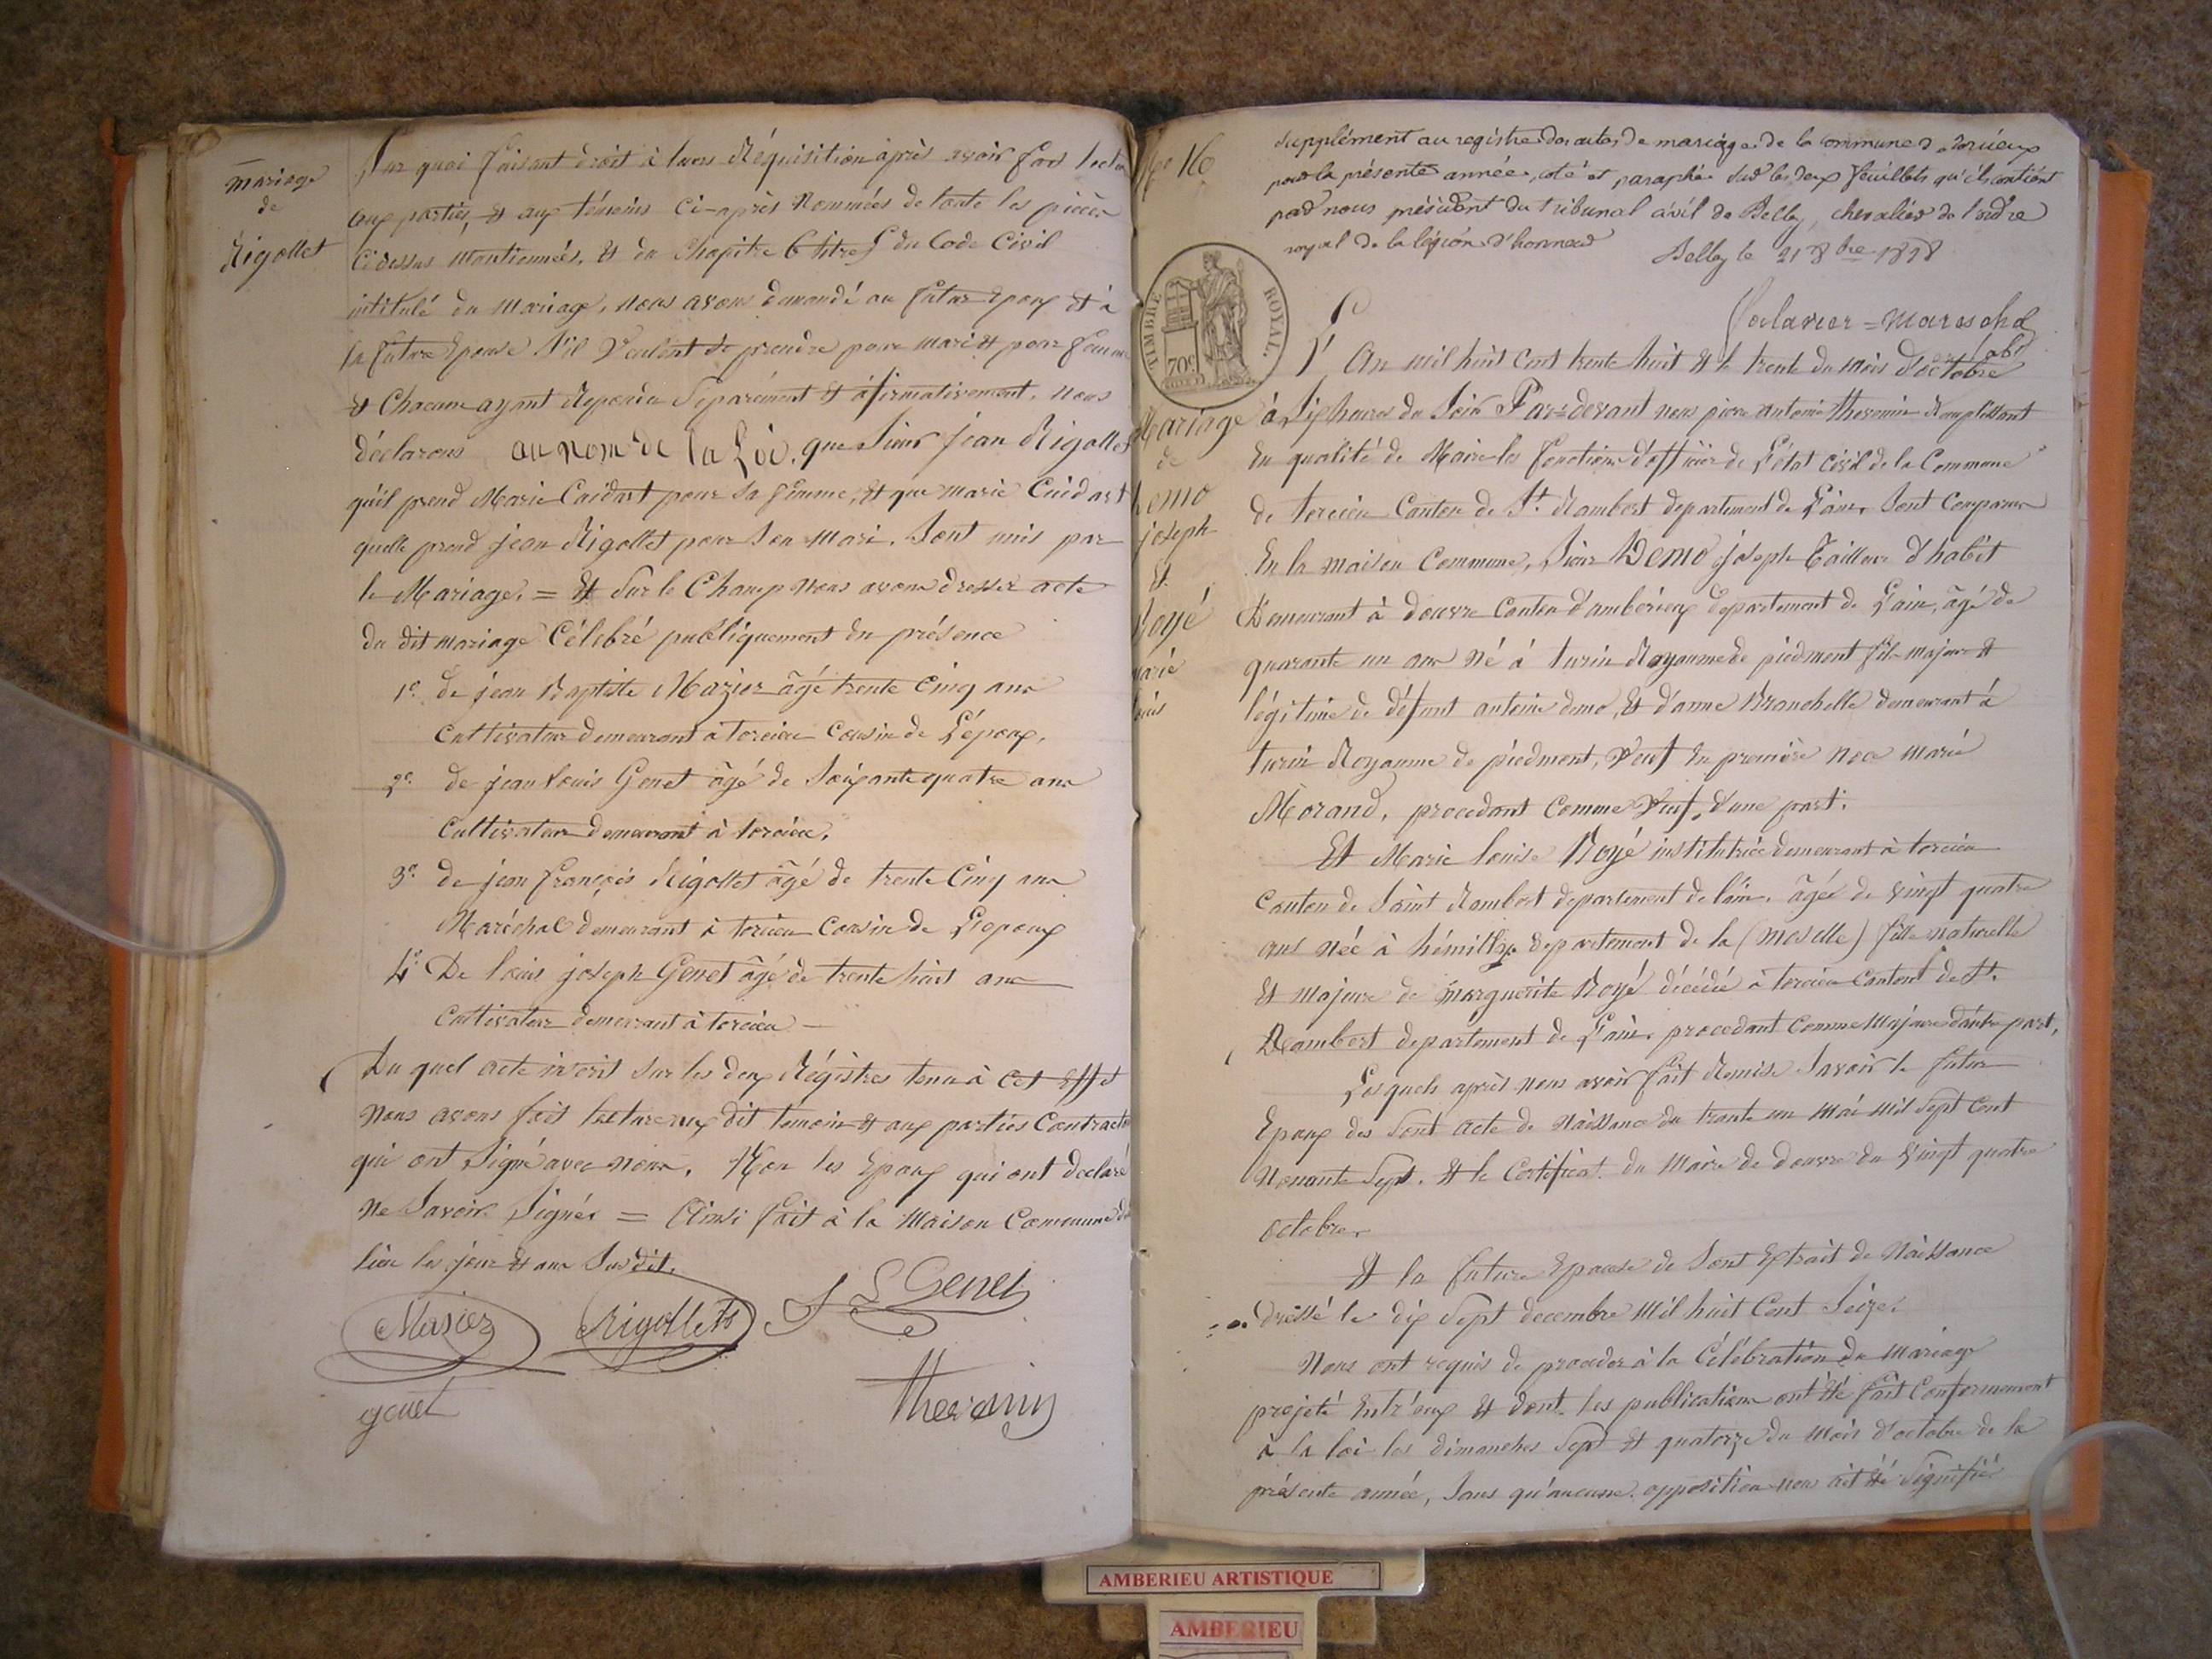 Mariage
de
Rigollet
Sur quoi faisant droit à leurs Réquisition après avoir fais lectur
aux parties, et aux témoins Ci-après Nommées de toute les pièces
Cidessus Mentionnées, et du Chapitre 6 titre 5 du Code Civil
intitulé du Mariage, nous avons demandé au futur Epoux et à
la future Epouse S'il Veulent se prendre pour mari et pour femme
et Chacun ayant Repondu Séparément et affirmativement. Nous
déclarons au nom de la Loi, que Sieur Jean Rigollet
qu'il prend Marie Cuidart pour Sa femme, et que marie Cuidart
quelle prend jean Rigollet pour Son Mari. Sont unis par
le Mariage. = Et Sur le Champ Nous avons dresser acte
du dit mariage Célébré publiquement en présence
1º de jean Baptiste Mazier âgé trente Cinq ans
Cultivateur demeurant à torcieu Cousin de L'époux,
2º de jean Louis Genet âgé de Soixante quatre ans
Cultivateur demeurant à torcieu,
3º de jean françois Rigollet âgé de trente Cinq ans
Maréchal demeurant à torcieu Cousin de L'epoux
4º De louis joseph Genet âgé de trente huit ans
Cultivateur demeurant à torcieu —
Du quel acte inscrit Sur les deux Régistres tenu à Cet Effet
Nous avons fait lecture aux dit temoin et aux parties Contracte
qui ont Signé avec nous, Non les Epoux qui ont declaré
Ne Savoir Signer = Ainsi fait à la Maison Commune du
lieu les jour et ans Susdit.
Masier Rigollet J L Genet
genet Thevenin
Nº 16
Supplément au registre des actes de mariage de la commune de torcieux
pour la présente année, coté et paraphé sur les deux feuillets qu'il contient
par nous président du tribunal civil de Belley, chevalier de l'ordre
royal de la légion d'honneur
Belley le 21 8bre 1838
TIMBRE ROYAL.
70c
L'An mil huit Cent trente huit et le trente du Mois d'octobre
Mariage
de
Demo
joseph
Et
Noyé
marie
louis
à Six heures du Soir Par-devant nous pierre antoine thevenin Remplissant
En qualité de Maire les fonctions d'officier de L'état Civil de la Commune
de torcieu Canton de St. Rambert departement de L'ain, Sont Comparus
En la maison Commune, Sieur Demo joseph tailleur d'habit
Demeurant à douvre Canton d'ambérieux departement de L'ain, âgé de
quarante un ans Né à turin Royaume de piedmont fils majeur et
légitime de défunt antoine demo, Et d'anne Branchelle demeurant à
turin Royaume de piedmont, Veuf En première Noce Marie
Morand, procedant Comme Veuf, d'une part.
Et Marie louise Noyé institutrice demeurant à torcieu
Canton de Saint Rambert departement de l'ain, âgée de vingt quatre
ans née à hémilly departement de la (moselle) fille naturelle
Et majeure de Marguerite Noyé décédé à torcieu Canton de St.
Rambert departement de L'ain, procedant Comme Majeure d'autre part,
Lesquels après nous avoir fait Remise Savoir le futur
Epoux des Sont acte de Naissance du trente un Mai Mil Sept Cent
Nonante Sept. Et le Certificat du Maire de douvre du Vingt quatre
octobre.
Et la future Epouse de Sont Extrait de Naissance
dressé le dix Sept decembre Mil huit Cent Seize.
Nous ont requis de proceder à la Célébration du Mariage
projeté Entr'eux et dont les publications ont été fait Conformement
à la loi les dimanches Sept et quatorze du Mois d'octobre de la
présente année, Sans qu'aucune opposition nous ait été Signifié
AMBERIEU ARTISTIQUE
AMBERIEU